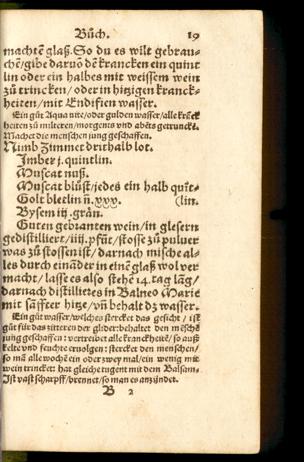 Bůch. 19
machtē glaß. So du es wilt gebrau-
chē/gibe daruō dē krancken ein quint
lin oder ein halbes mit weissem wein
zů trincken/oder in hitzigen kranck-
heiten/mit Endifien wasser.
Ein gůt Aqua vite/oder gulden wasser/alle krāck
heiten zů miltern/morgents vnd abēts getrunckē.
Machet die menschen jung geschaffen.
Nimb Zimmet drithalb lot.
Imber j. quintlin.
Muscat nuß.
Muscat blůst/jedes ein halb quīt-
Golt bletlin ñ. xxx. (lin.
Bysem iij. grān.
Guten gebranten wein/in glesern
gedistilliert/iiij. pfūt/stosse zů puluer
was zů stossen ist/darnach mische al-
les durch eināder in einē glaß wol ver
macht/lasse es also stehē 14. tag lāg/
darnach distillier es in Balneo Marie
mit sāffter hitze/vñ behalt dz wasser.
Ein gůt wasser/welches stercket das gesicht/ist
gůt für das zitteren der glider: behaltet den mēschē
jung geschaffen: vertreibet alle kranckheitē/so auß
kelte vnd feuchte ervolgen: stercket den menschen/
so mā alle wochē ein oder zwey mal/ein wenig mit
wein trincket: hat gleiche tugent mit dem Balsam.
Ist vast scharpff/brennet/so man es anzündet.
B 2